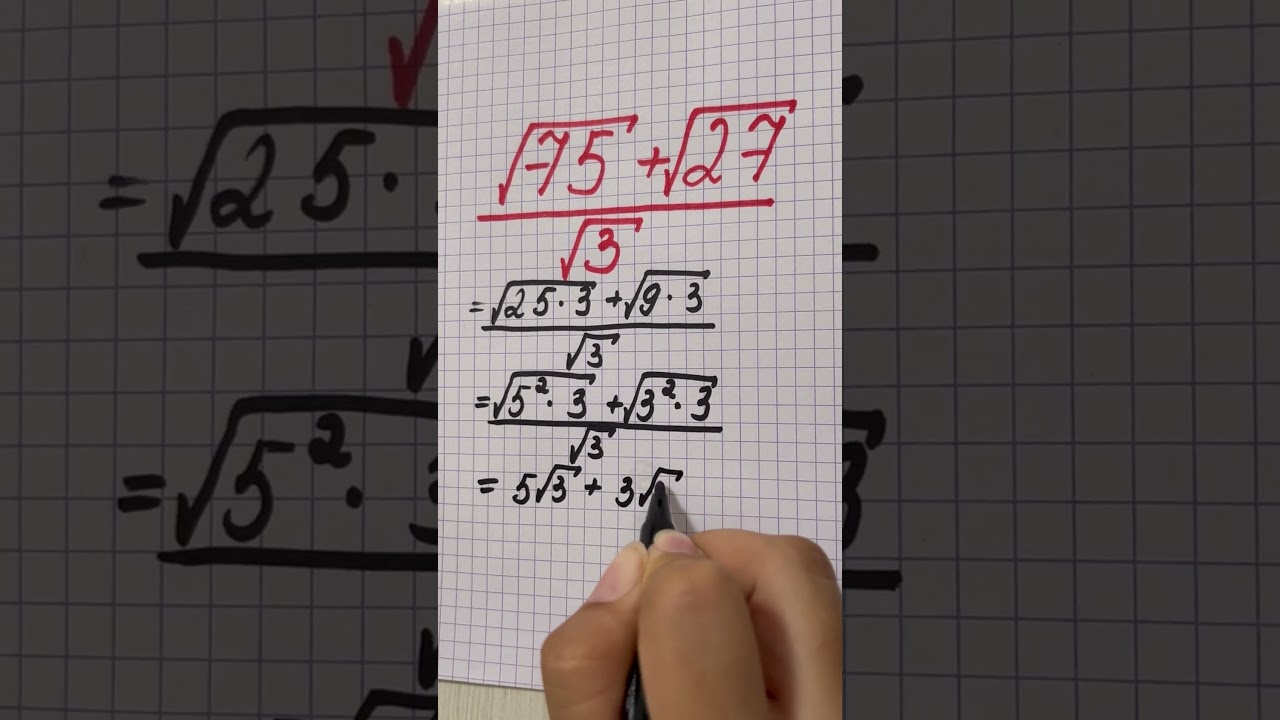 √75 + √27
√3
= √25 · 3 + √9 · 3
√3
= √5² · 3 + √3² · 3
√3
= 5√3 + 3√